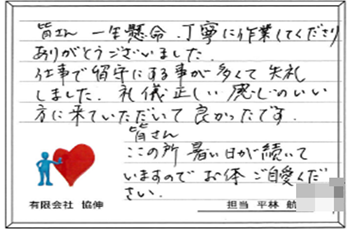 皆さん 一生懸命、丁寧に作業してくださり
ありがとうございました。
仕事で留守にする事が多くて失礼
しました。礼儀正しい感じのいい
方に来ていただいて良かったです。
皆さん
ここの所 暑い日が続いて
いますので お体 ご自愛くだ
さい。
有限会社 協伸
担当 平林 航